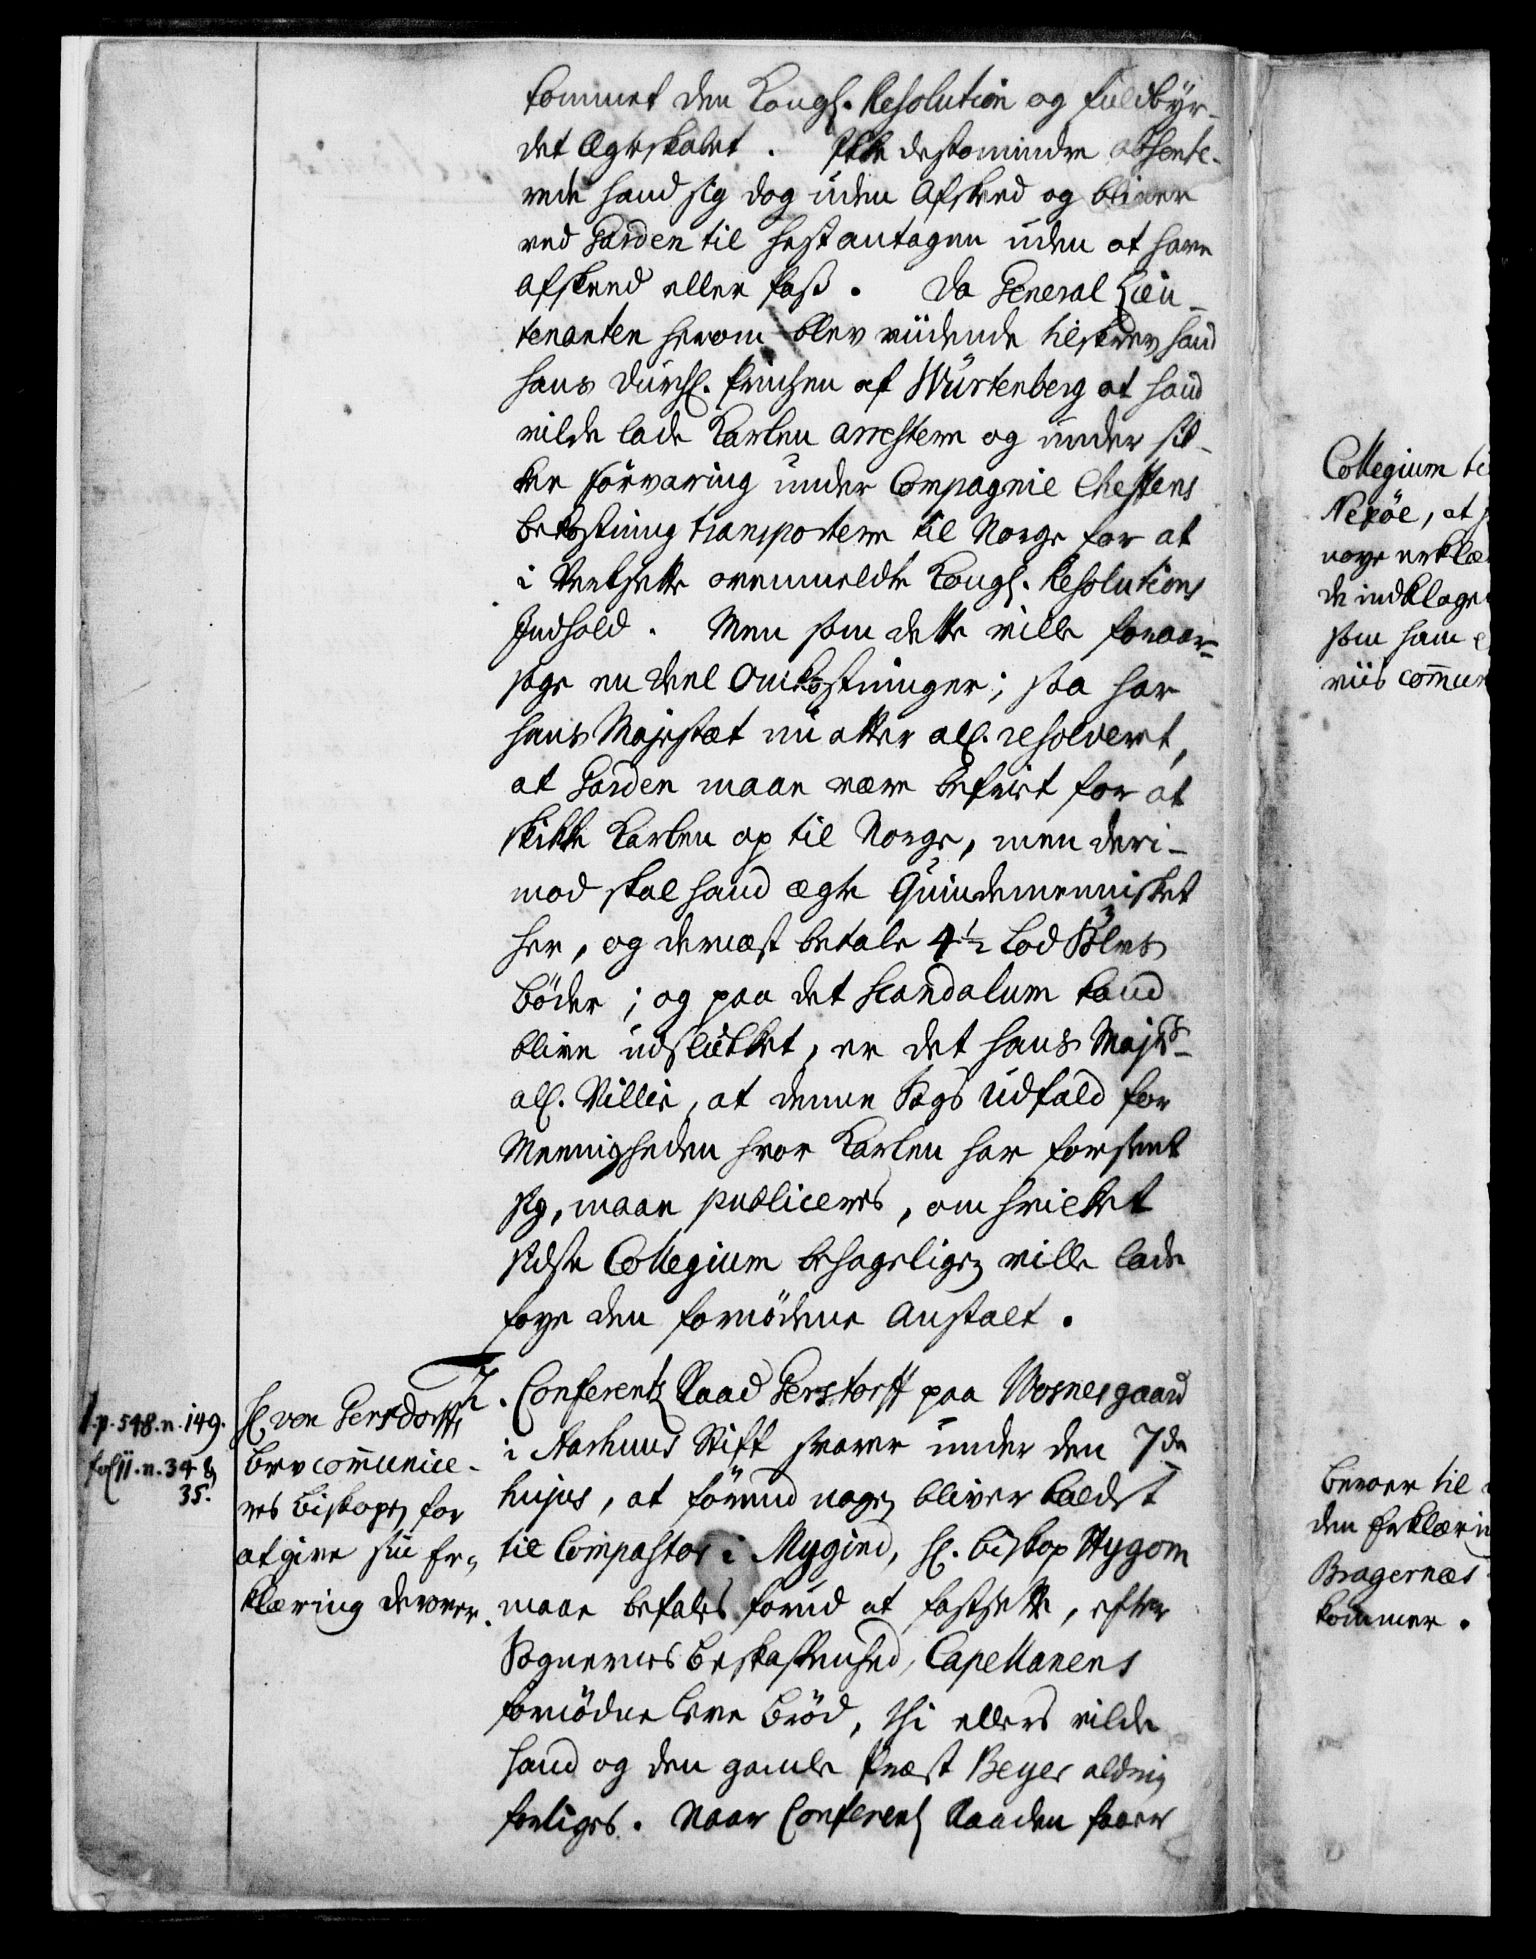 kommet den Kongl. Resolution og fuldbyr-
det Ægteskabet. Ikke destomindre absente-
rede hand sig dog uden Afskeed og bliver
ved Garden til Hest antagen uden at have
afskeed eller Pass. Da General Lieu-
tenanten herom blev viidende tilskrev hand
hans Durchl. Printzen af Würtenberg at hand
vilde lade Karlen arrestere og under sik-
ker forvaring under Compagnie Cheffens
bekostning transportere til Norge for at
i Verksette ovenmeldte Kongl. Resolutions
Indhold. Men som dette ville foraar-
sage en deel Omkostninger; saa har
hans Majestæt nu atter all. resolveret,
at Garden maae være befriet for at
skikke Karlen op til Norge, men deri-
mod skal hand ægte Quindemennisket
her, og dernæst betale 4½ Lod Sølvs
bøder; og paa det Scandalum kand
blive udslukket, er det hans Majts
all. Villie, at denne Sags Udfald for
Meenigheden hvor Karlen har forseet
sig, maae publiceres, om hvilket
sidste Collegium behageligen ville lade
føye den fornødene Anstalt.
7. Conferentz Raad Gerstorff paa Wosnesgaard
i Aarhuus Stift svarer under den 7de
hujus, at førend nogen bliver kaldet
til Compastor i Mygind, H. Biskop Hygom
maae befales forud at fastsette, efter
Sognernes beskaffenhed, Capellanens
fornødne leve brød, thi ellers vilde
hand og den gamle Præst Beyer aldrig
forliges. Naar Conferentz Raaden faaer
1. p. 548. n. 149.
fol 11. n. 34 &
35.
H. von Gersdorffs
brev communice-
res biskopen for
at give sin Er-
klæring derover.
Collegium ti
Nexöe, at
nøye erklæ
de indklage
som ham
viis commun
beroer til
den Erklærin
Bragernæs
kommer.